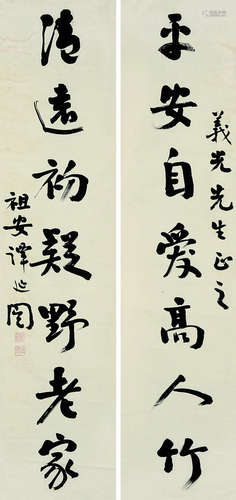 義光先生正之
平安自愛高人竹
清遠初疑野老家
祖安譚延闓